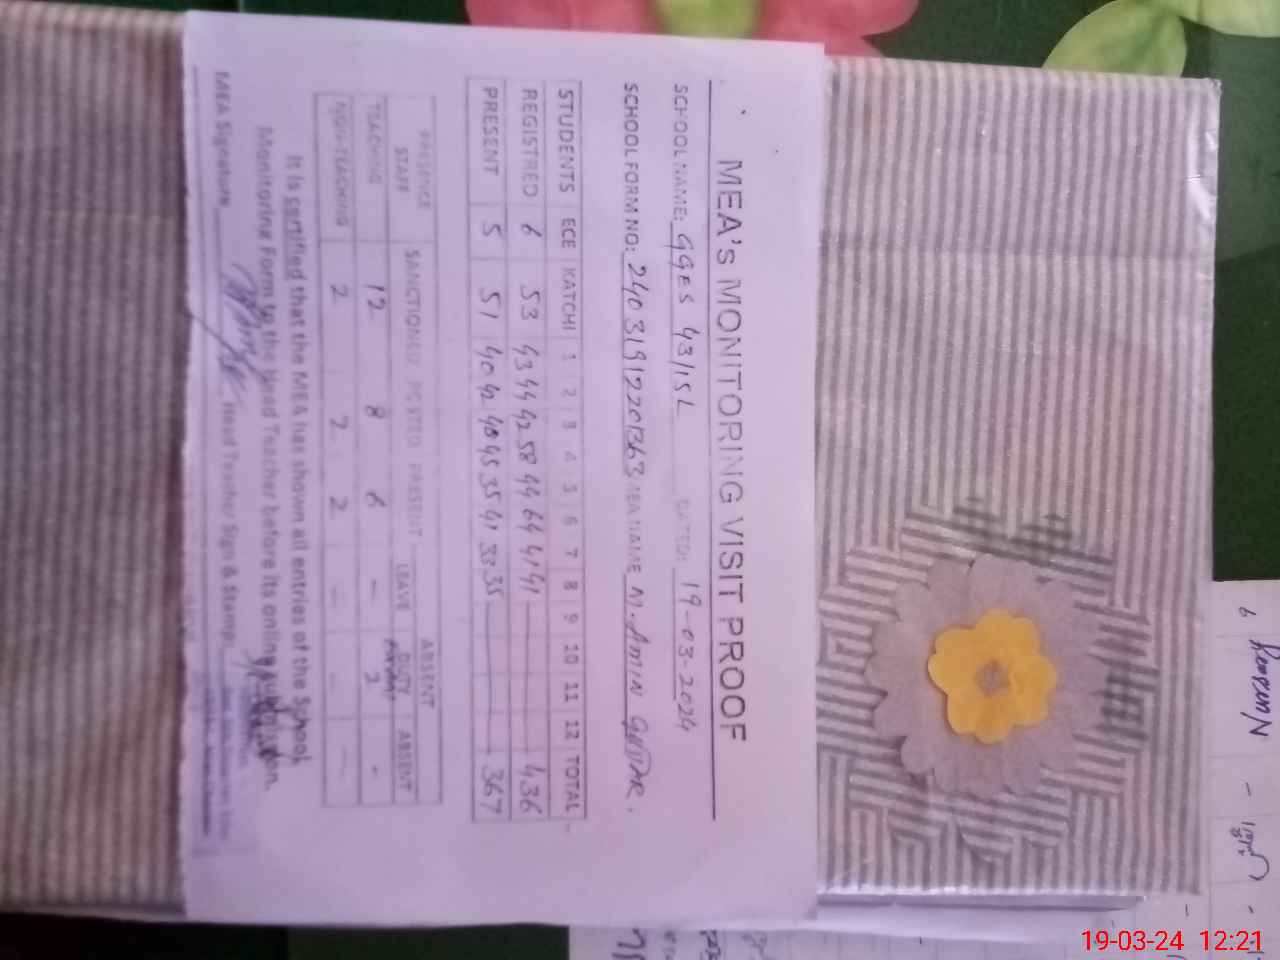 MEA's MONITORING VISIT PROOF
SCHOOL NAME: GGES 43/15L DATED: 19-03-2024
SCHOOL FORM NO: 24031912201363 MEA NAME M. AMIN
STUDENTS ECE KATCHI 1 2 3 4 5 6 7 8 9 10 11 12 TOTAL
REGISTRED 6 53 43 44 42 58 44 64 41 41 436
PRESENT 5 51 40 42 40 45 35 41 33 35 367
PRESENCE STAFF SANCTIONED POSTED PRESENT ABSENT
LEAVE DUTY ABSENT
TEACHING 12 8 6 - 2 -
NON-TEACHING 2 2 2 - - -
It is certified that the MEA has shown all entries of the School
Monitoring Form to the Head Teacher before its online submission.
MEA Signature Head Teacher Sign & Stamp
6 Nursery -
19-03-24 12:21